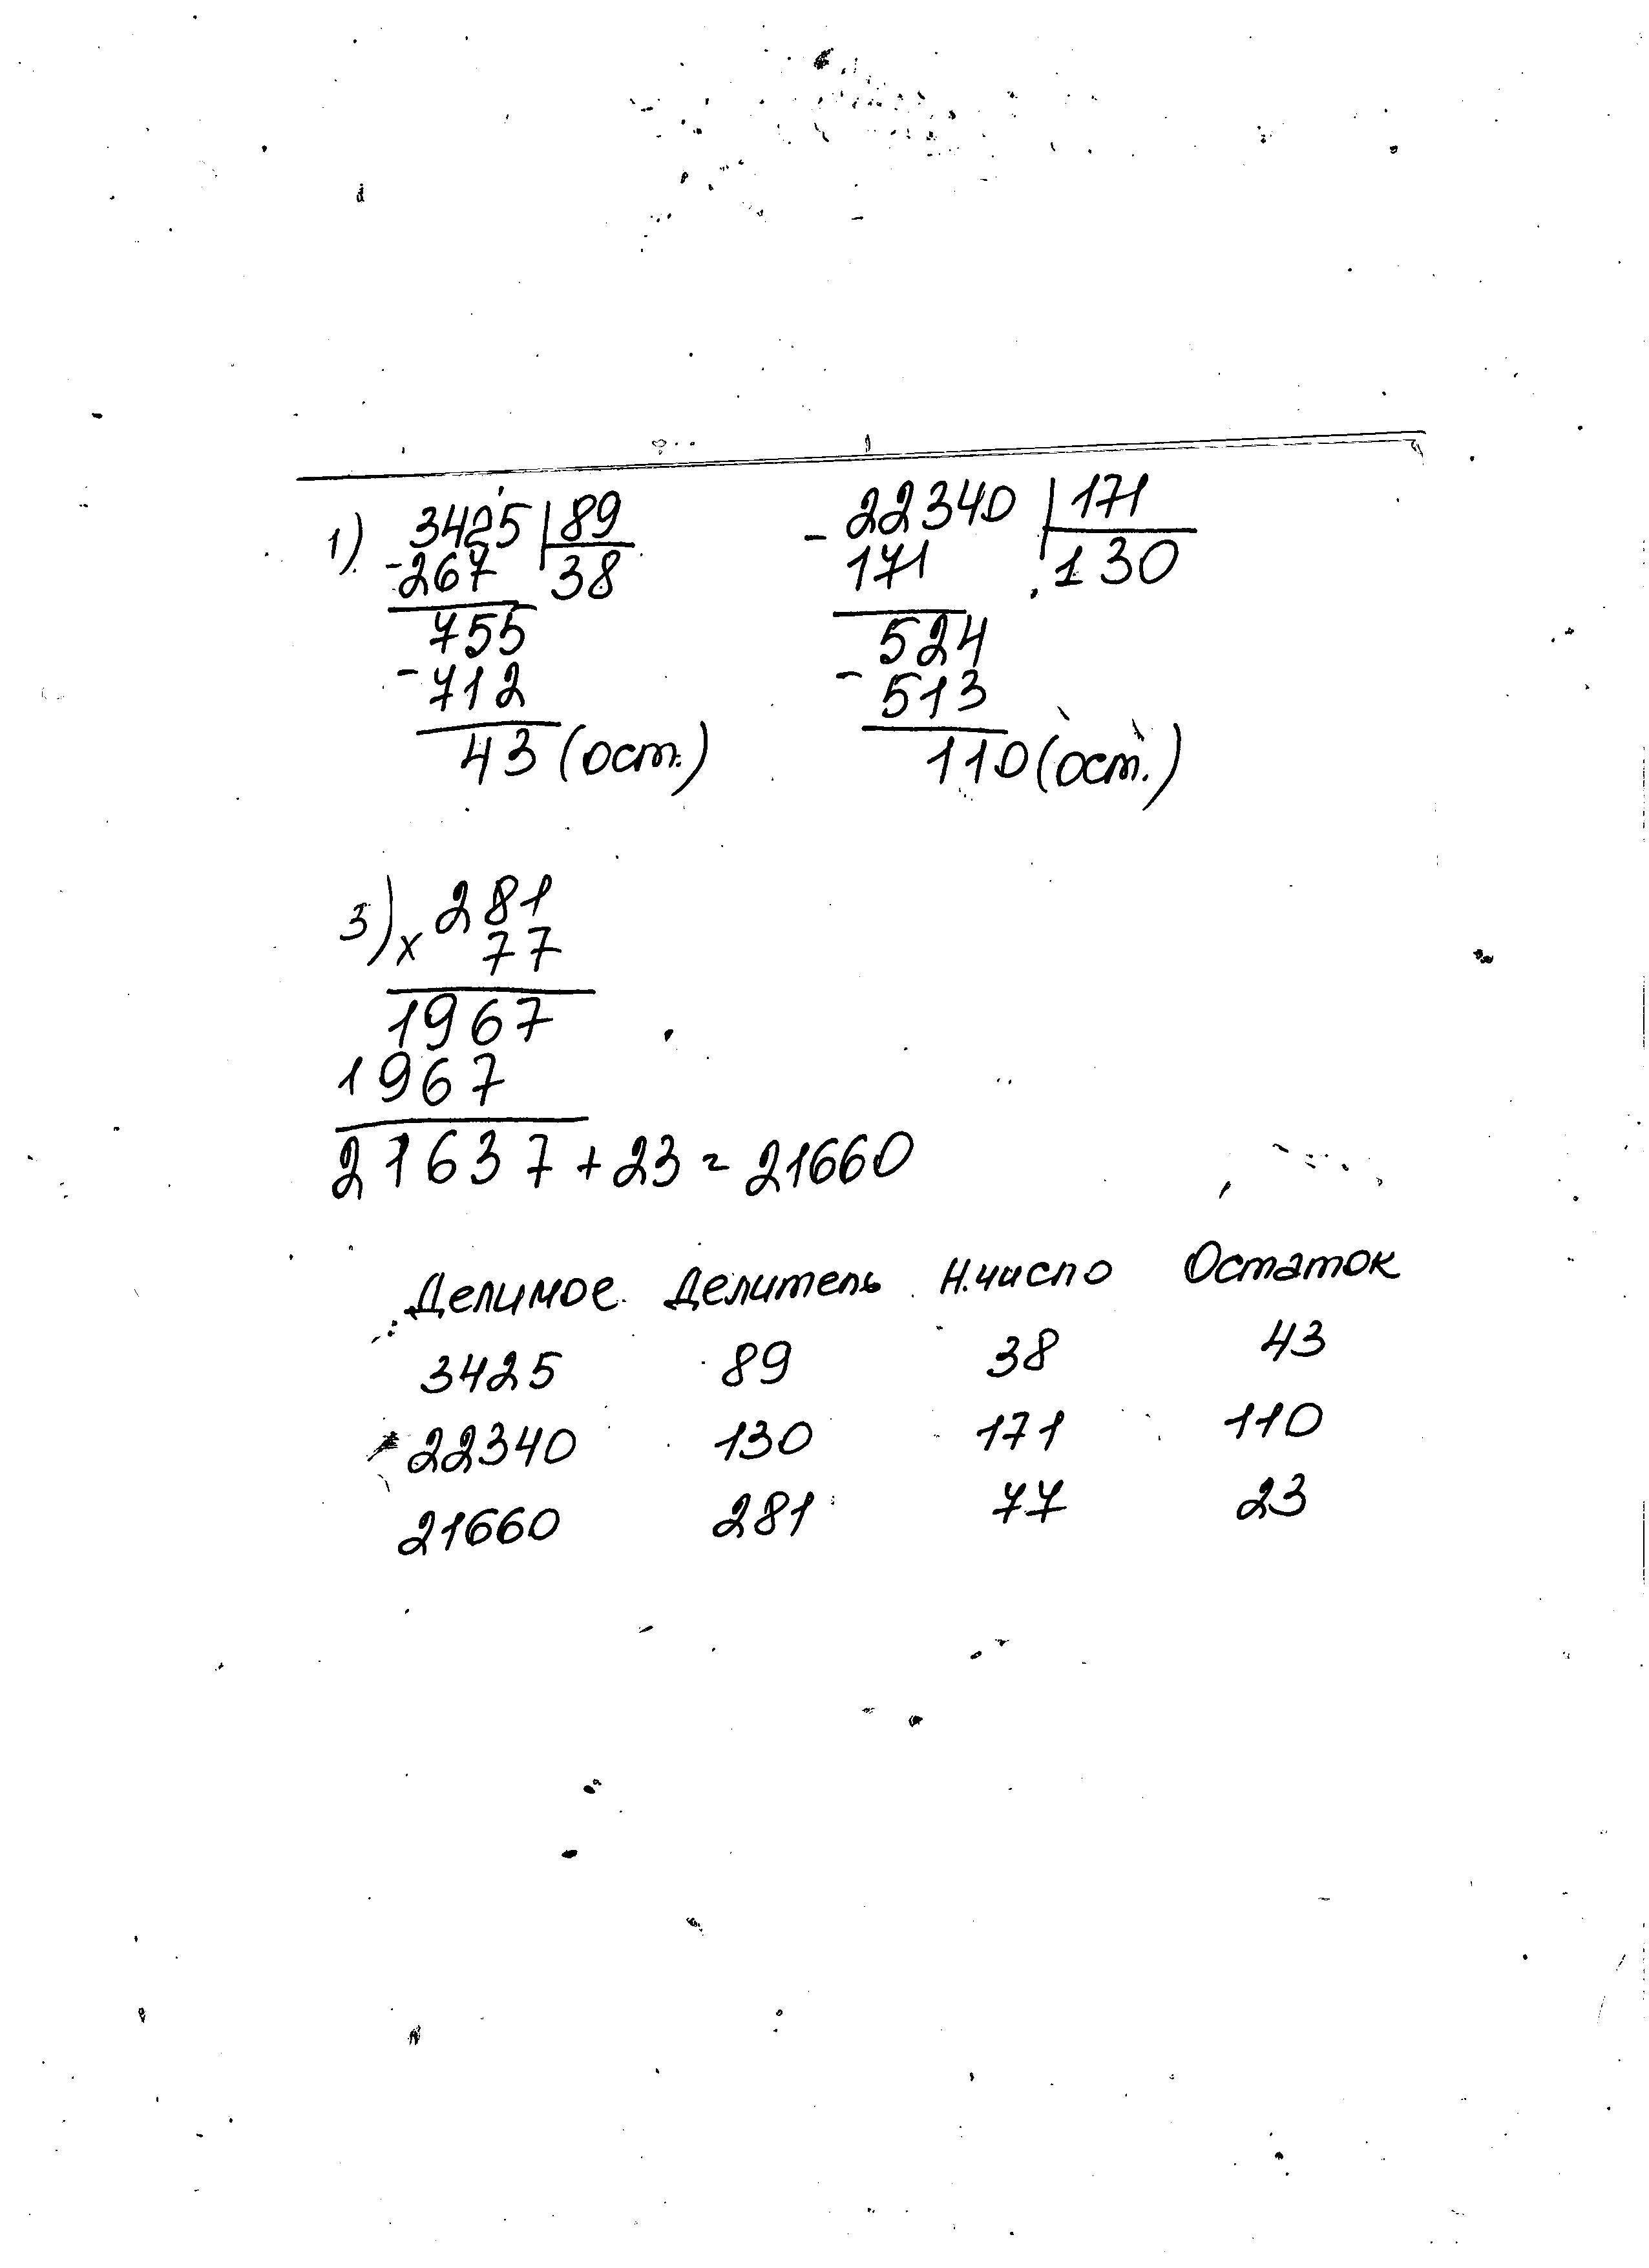 1) 3425 | 89
-267 38
755
-712
43 (ост.)
- 22340 | 171
171 130
524
- 513
110 (ост.)
3) x 281
77
1967
1967
21637 + 23 = 21660
Делимое Делитель Н.число Остаток
3425 89 38 43
22340 130 171 110
21660 281 77 23